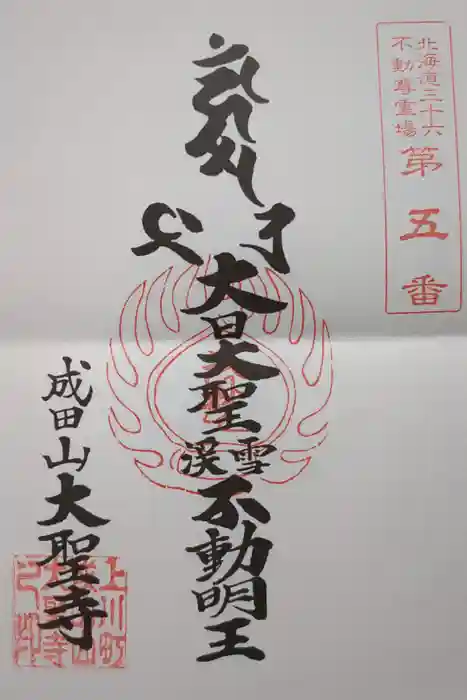 北海道三十六
不動尊霊場
第五番
大日大聖
雪渓
不動明王
成田山大聖寺
上川町